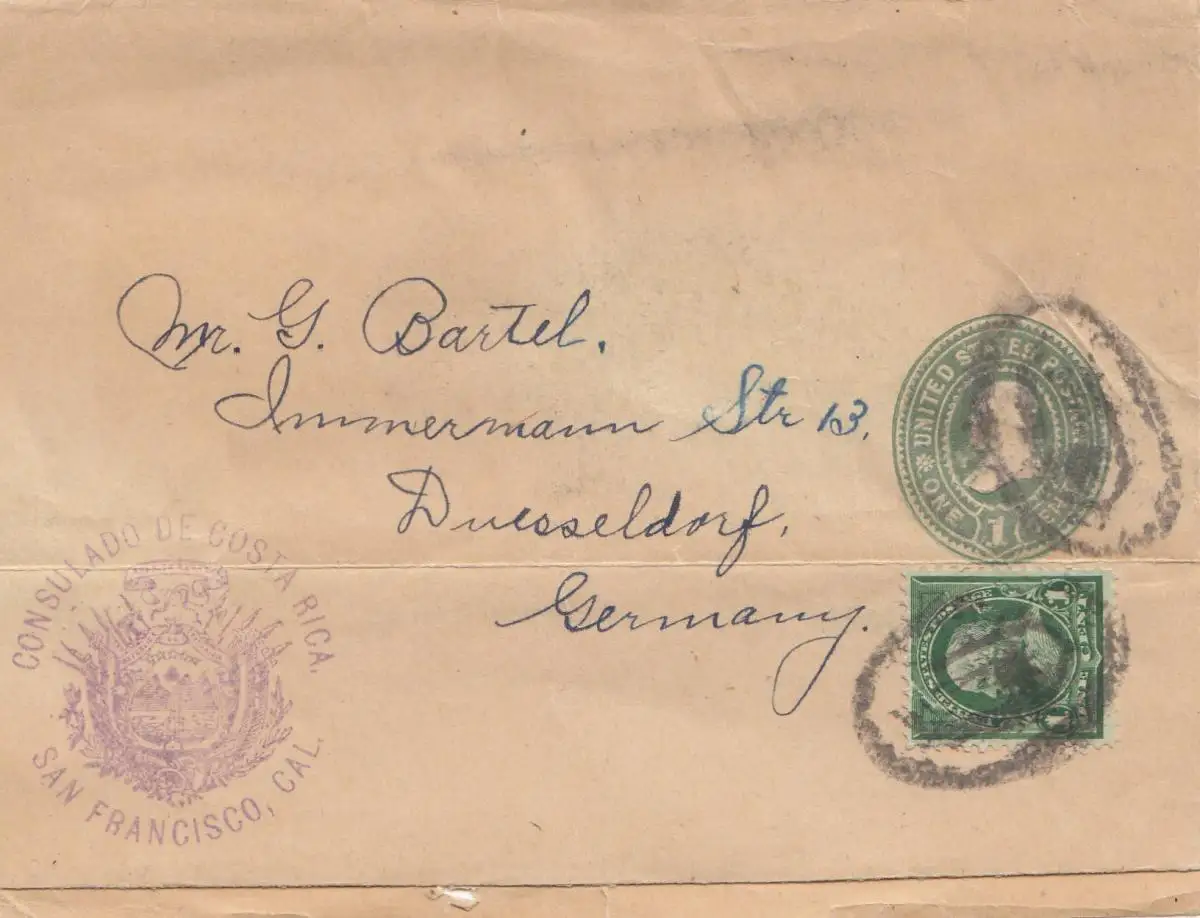 Mr. G. Bartel.
Immermann Str 13.
Duesseldorf,
Germany.
UNITED STATES POSTAGE
ONE CENT
1
UNITED STATES POSTAGE
ONE CENT
1
CONSULADO DE COSTA RICA,
SAN FRANCISCO, CAL.